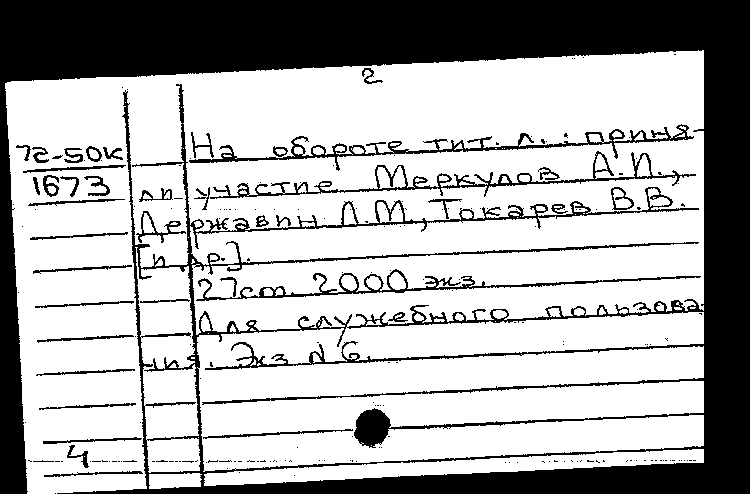 2
72-50к
1673
На обороте тит. л.: приня-
ли участие Меркулов А.И.,
Державин Л.М., Токарев В.В.
[и др.].
27см. 2000 экз.
Для служебного пользова-
ния. Экз N 6.
4